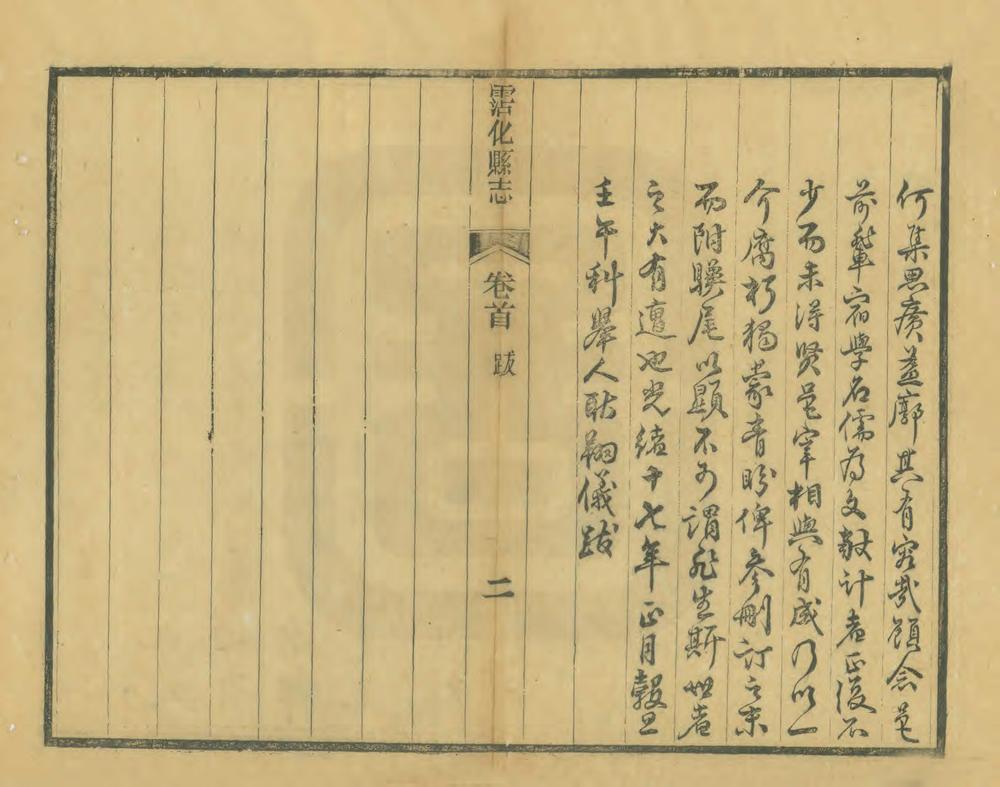 何集思廣益廓其有容哉顧念邑
前輩宿學名儒為文獻計者正復不
少而未得賢邑宰相與有成乃以一
介腐朽獨蒙青盼俾參刪訂之末
而附驥尾以顯不可謂非生斯世者
之大有遭也光緒十七年正月穀旦
壬午科舉人耿翔儀跋
霑化縣志
卷首
跋
二